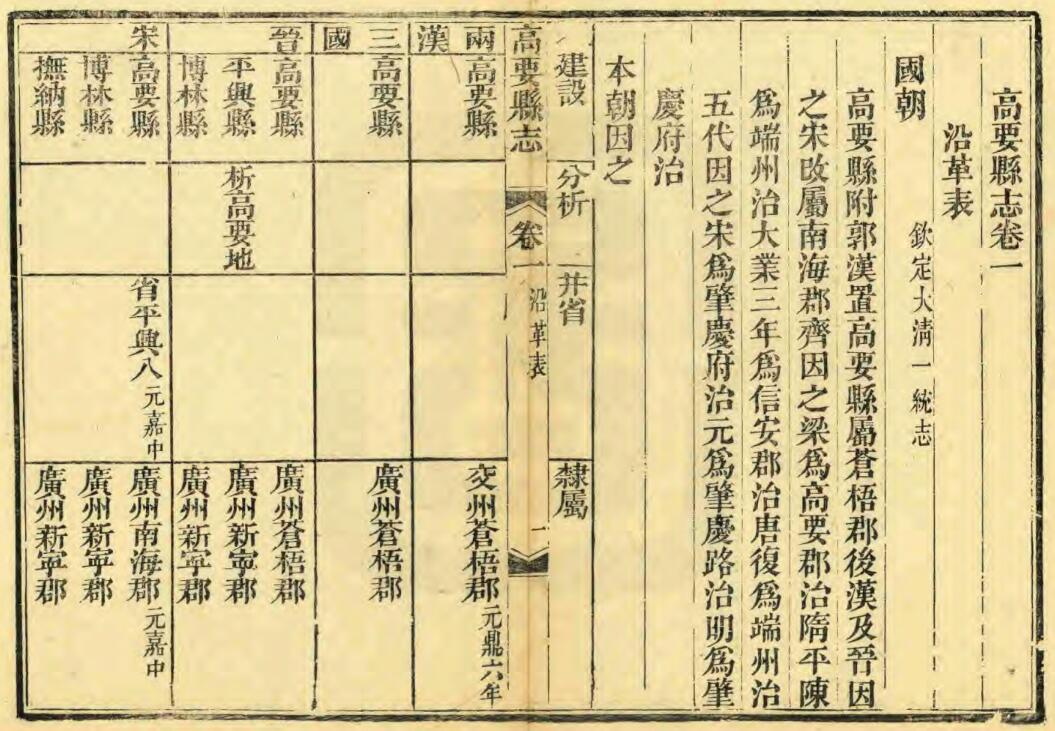 高要縣志卷一
沿革表
國朝
欽定大淸一統志
高要縣附郭漢置高要縣屬蒼梧郡後漢及晉因
之宋改屬南海郡齊因之梁爲高要郡治隋平陳
爲端州治大業三年爲信安郡治唐復爲端州治
五代因之宋爲肇慶府治元爲肇慶路治明爲肇
慶府治
本朝因之
建設 分析 并省 隸屬
高要縣志 卷一 沿革表 一
兩漢
高要縣 交州蒼梧郡元鼎六年
三國
高要縣 廣州蒼梧郡
晉
高要縣 廣州蒼梧郡
平興縣 析高要地 廣州新寧郡
博林縣 廣州新寧郡
宋
高要縣 省平興入元嘉中 廣州南海郡元嘉中
博林縣 廣州新寧郡
撫納縣 廣州新寧郡